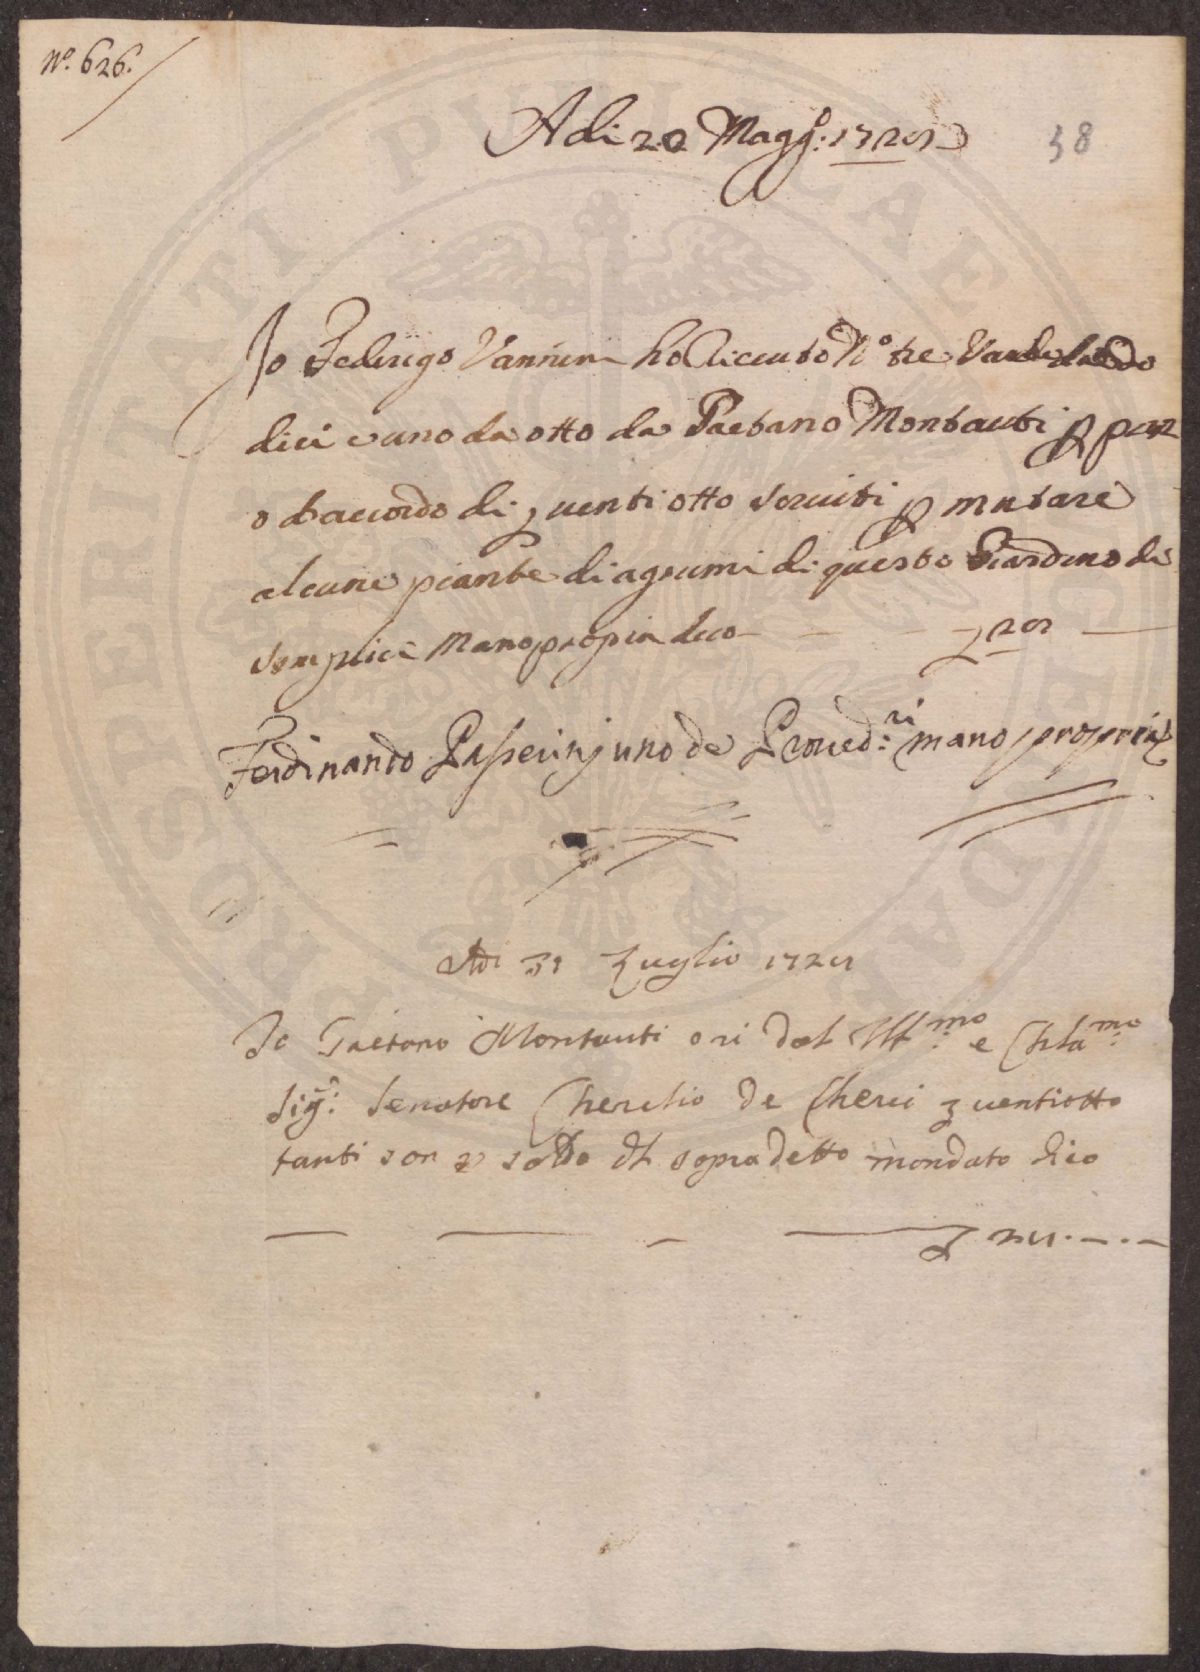 Nº. 626.
Adi 20 Magg.º 1728
38
Io Federigo Vannini ho riceuto Nº tre Vasi da do
dici e uno da otto da Gaetano Montauti p prez
o d'accordo di z venti otto seruiti p mutare
alcune piante di agrumi di questo Giardino de
semplici Mano propia dico — z 28 —
Ferdinando Passerinj uno de Proued.ri mano propria
Adi 31 Luglio 1728
Io Gaetano Montauti o ri dal Ill.mo e Cla.mo
Sig.r Senatore Cherubio de Cherci z ventiotto
tanti son p saldo del sopradetto mandato dico
— — — — z 28. —. —
PROSPERITATI PUBLICAE